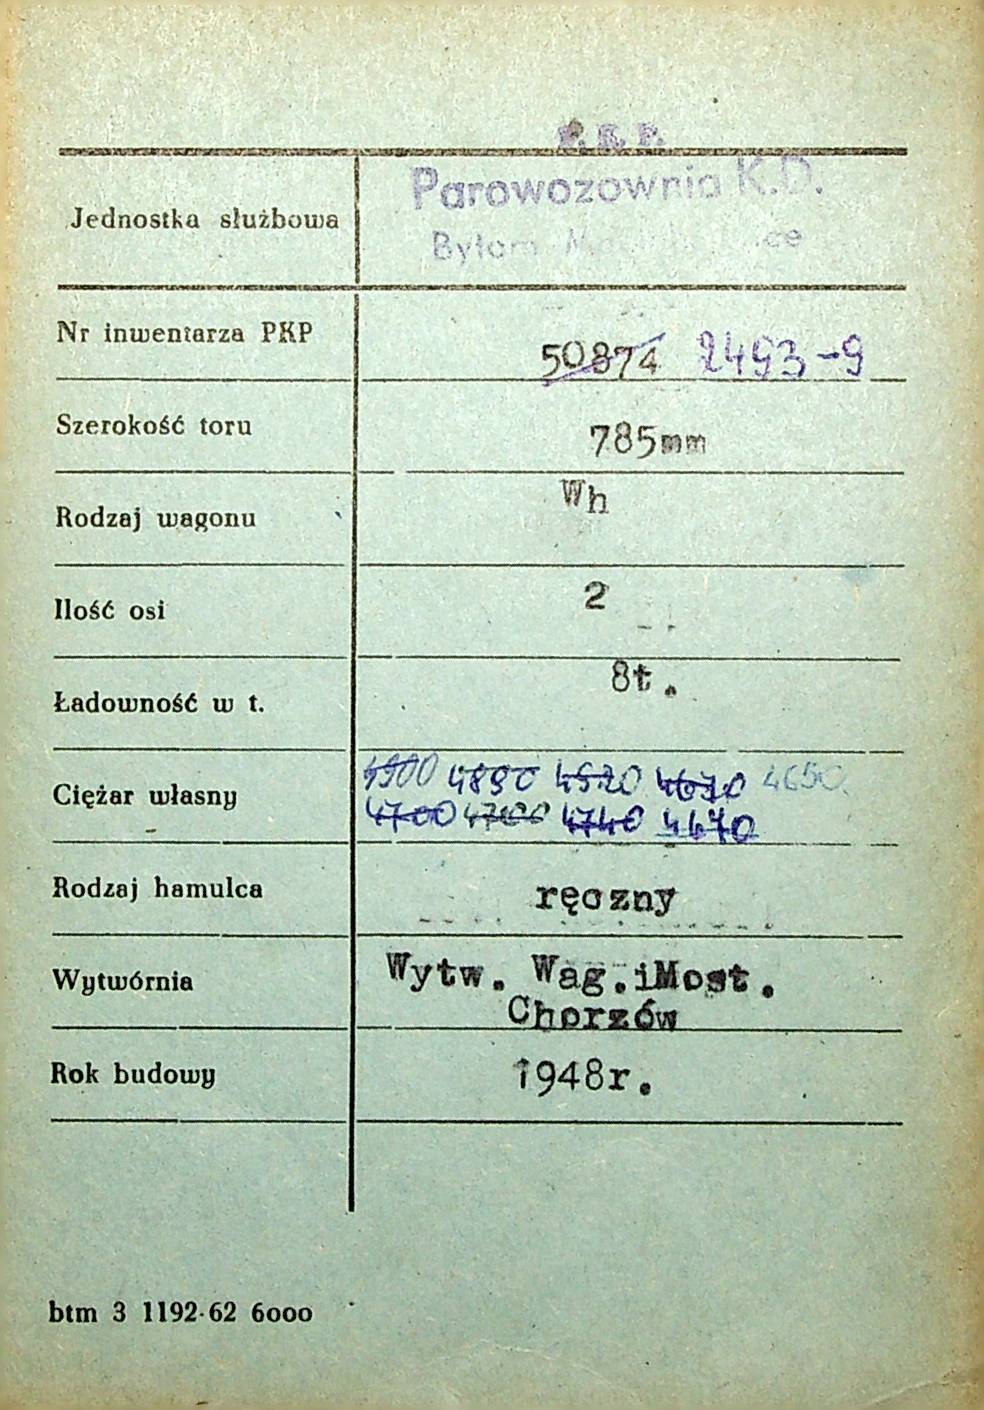 P. K. P.
Parowozownia K.D.
Jednostka służbowa
Bytom
Nr inwentarza PKP 50874 2493-9
Szerokość toru 785mm
Rodzaj wagonu Wh
Ilość osi 2
Ładowność w t. 8t.
4900 4890 4520 4630 4650.
Ciężar własny
4700 4700 4740 4670
Rodzaj hamulca ręczny
Wytwórnia Wytw. Wag.iMost.
Chorzów
Rok budowy 1948r.
btm 3 1192-62 6000